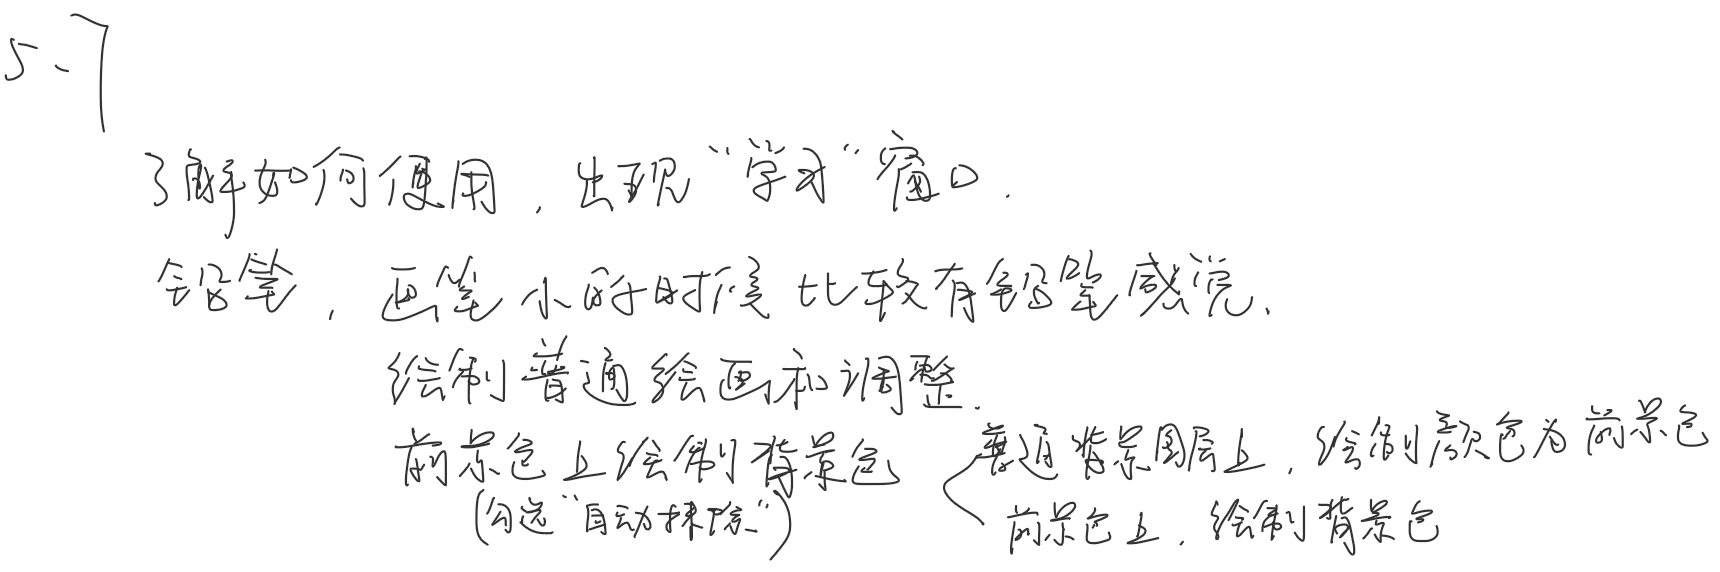 5-7
了解如何使用，出现“学习”窗口.
铅笔，画笔小的时候比较有铅笔感觉.
绘制普通绘画和调整.
前景色上绘制背景色
(勾选“自动抹除”)
普通背景图层上，绘制颜色为前景色
前景色上，绘制背景色